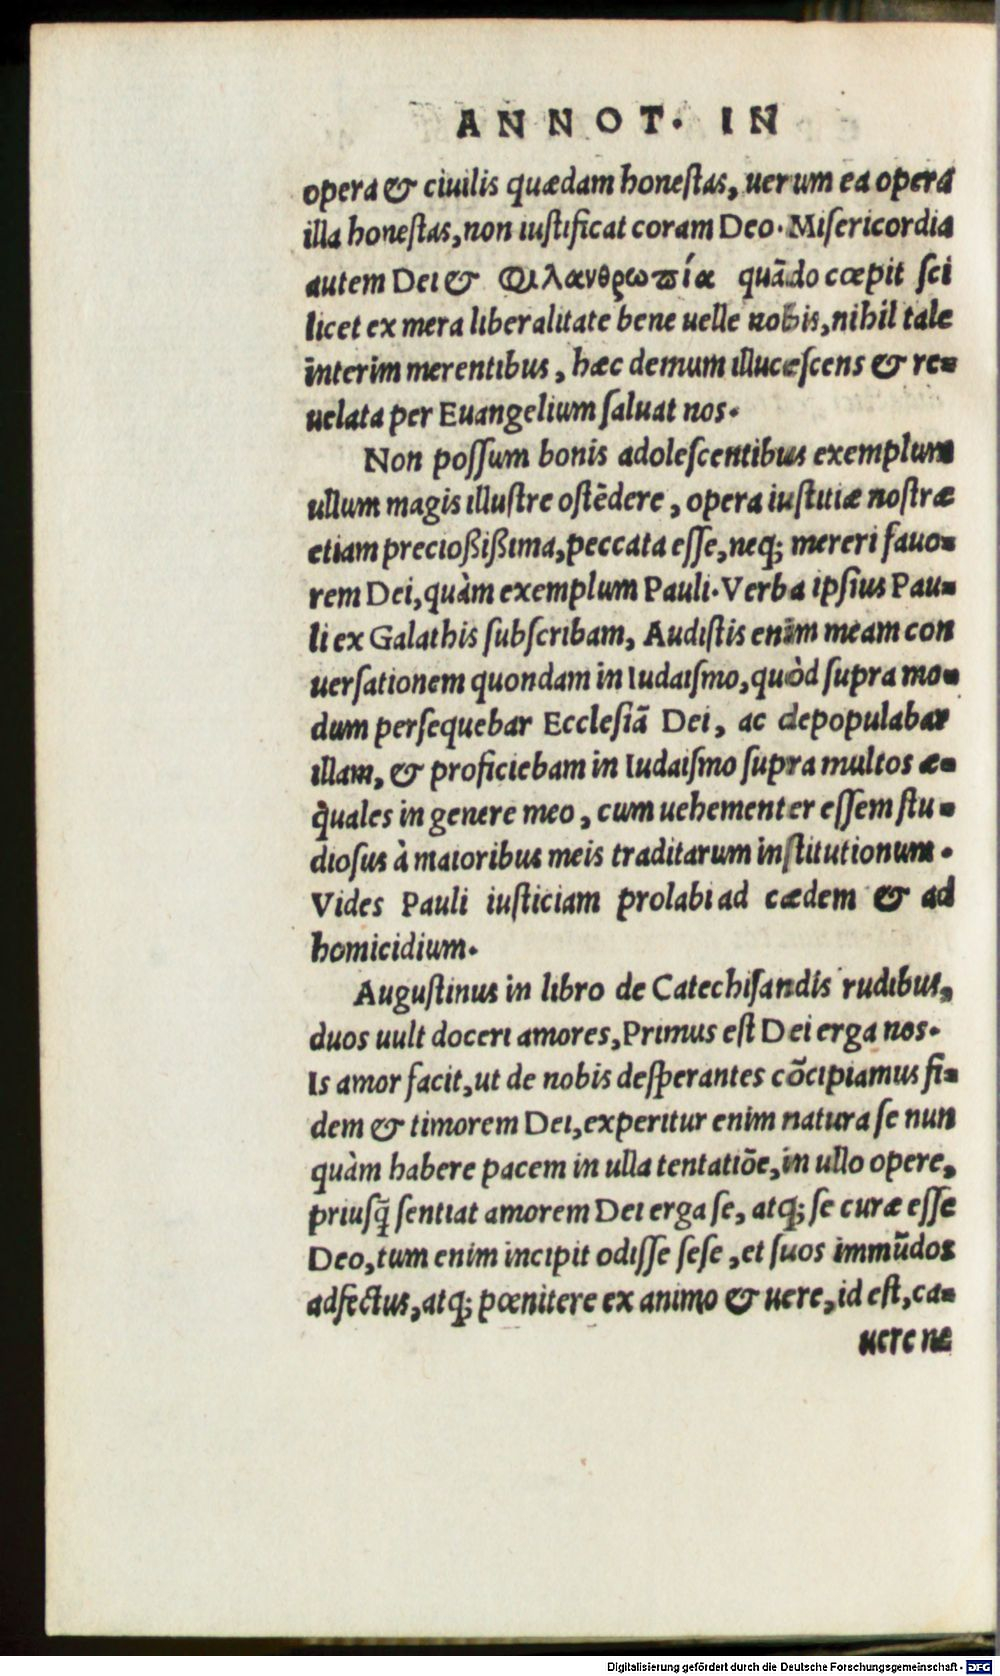 ANNOT. IN
opera & ciuilis quædam honeſtas, uerum ea opera
illa honeſtas, non iuſtificat coram Deo. Miſericordia
autem Dei & Φιλανθρωπία quādo cœpit ſci
licet ex mera liberalitate bene uelle nobis, nihil tale
interim merentibus, hæc demum illuceſcens & re=
uelata per Euangelium ſaluat nos.
Non poſſum bonis adoleſcentibus exemplum
ullum magis illuſtre oſtēdere, opera iuſtitiæ noſtræ
etiam precioßißima, peccata eſſe, neq; mereri fauo=
rem Dei, quàm exemplum Pauli. Verba ipſius Pau=
li ex Galathis ſubſcribam, Audiſtis enim meam con
uerſationem quondam in Iudaiſmo, quòd ſupra mo=
dum perſequebar Eccleſiā Dei, ac depopulabar
illam, & proficiebam in Iudaiſmo ſupra multos æ=
quales in genere meo, cum uehementer eſſem ſtu=
dioſus à maioribus meis traditarum inſtitutionum.
Vides Pauli iuſticiam prolabi ad cædem & ad
homicidium.
Auguſtinus in libro de Catechiſandis rudibus,
duos uult doceri amores, Primus eſt Dei erga nos.
Is amor facit, ut de nobis deſperantes cōcipiamus fi=
dem & timorem Dei, experitur enim natura ſe nun
quàm habere pacem in ulla tentatiōe, in ullo opere,
priuſq̃ ſentiat amorem Dei erga ſe, atq; ſe curæ eſſe
Deo, tum enim incipit odiſſe ſeſe, et ſuos immūdos
adfectus, atq; pœnitere ex animo & uere, id eſt, ca=
uere ne
Digitalisierung gefördert durch die Deutsche Forschungsgemeinschaft - DFG